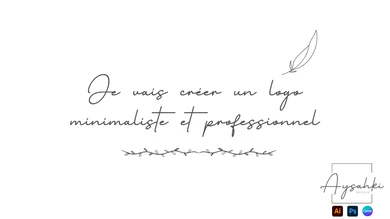 Je vais créer un logo
minimaliste et professionnel
Aysahki
Ai Ps